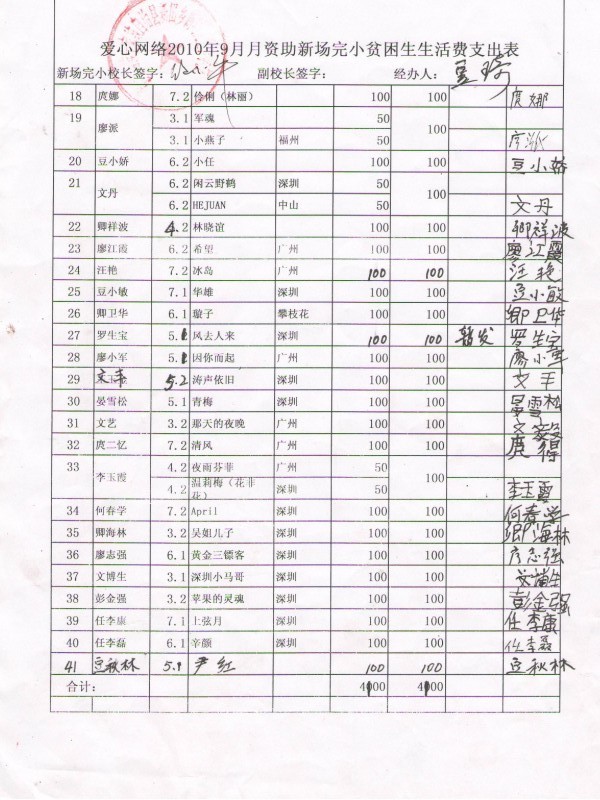 爱心网络2010年9月月资助新场完小贫困生生活费支出表
新场完小校长签字： 副校长签字： 经办人：
18 庹娜 7.2 伶俐（林丽） 100 100 庹娜
19 廖派 3.1 军魂 50 100 廖派
3.1 小燕子 福州 50
20 豆小娇 6.2 小任 100 100 豆小娇
21 文丹 6.2 闲云野鹤 深圳 50 100 文丹
6.2 HEJUAN 中山 50
22 卿祥波 4.2 林晓谊 100 100 卿祥波
23 廖江霞 6.2 希望 广州 100 100 廖江霞
24 汪艳 7.2 冰岛 广州 100 100 汪艳
25 豆小敏 7.1 华雄 深圳 100 100 豆小敏
26 卿卫华 6.1 璇子 攀枝花 100 100 卿卫华
27 罗生宝 5.1 风去人来 深圳 100 100 暂发 罗生宝
28 廖小军 5.1 因你而起 广州 100 100 廖小军
29 文丰 5.2 涛声依旧 深圳 100 100 文丰
30 晏雪松 5.1 青梅 深圳 100 100 晏雪松
31 文艺 3.2 那天的夜晚 广州 100 100
32 庹二忆 7.2 清风 广州 100 100
33 李玉霞 4.2 夜雨芬菲 广州 50 100 李玉霞
4.2 温莉梅（花非花） 深圳 50
34 何春学 7.2 April 深圳 100 100 何春学
35 卿海林 3.2 吴姐儿子 深圳 100 100 卿海林
36 廖志强 6.1 黄金三镖客 深圳 100 100 廖志强
37 文博生 3.1 深圳小马哥 深圳 100 100
38 彭金强 3.2 苹果的灵魂 深圳 100 100 彭金强
39 任李康 7.1 上弦月 深圳 100 100 任李康
40 任李磊 6.1 辛颜 深圳 100 100 任李磊
41 豆秋林 5.1 尹红 100 100 豆秋林
合计： 4100 4100